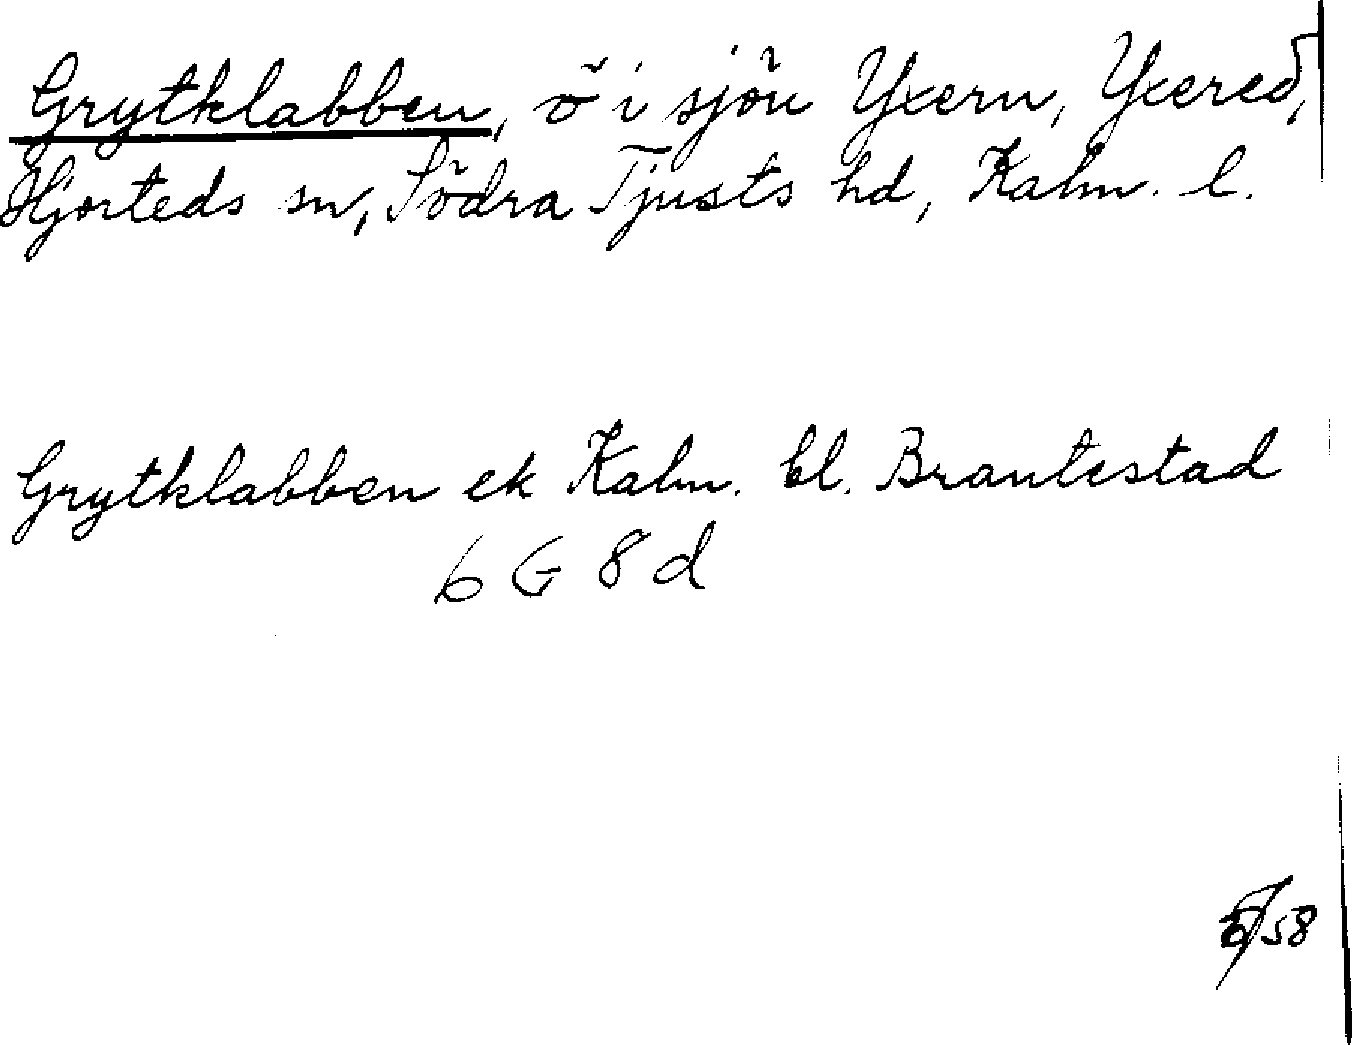 Grytklabben, ö i sjön Yxern, Yxered,
Hjorteds sn, Södra Tjusts hd, Kalm. l.
Grytklabben ek Kalm. bl. Brantestad
6 G 8 d
/58